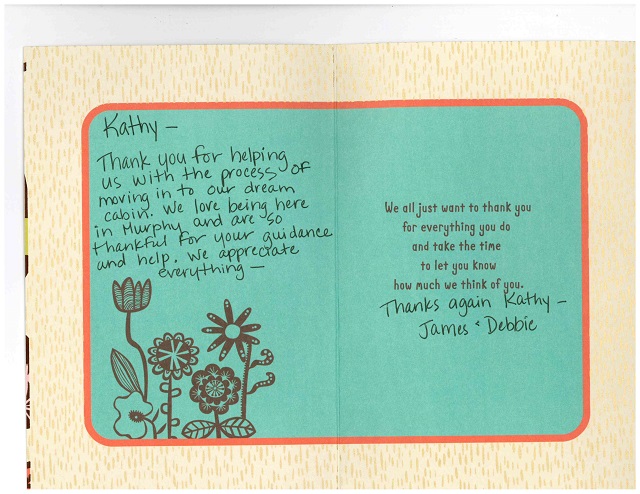 Kathy —
Thank you for helping
us with the process of
moving in to our dream
cabin. We love being here
in Murphy and are so
thankful for your guidance
and help. We appreciate
everything —
We all just want to thank you
for everything you do
and take the time
to let you know
how much we think of you.
Thanks again Kathy —
James & Debbie